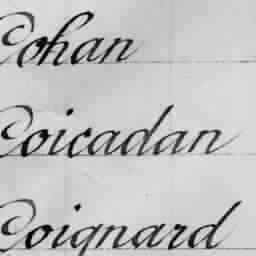 Cohan
Coicadan
Coignard